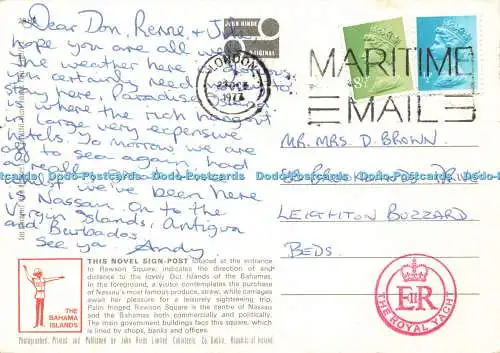 Dear Don, Renne + Julie
hope you are all well
the weather here
you certainly need money to
stay here, Paradise
is where the rich hang out
in large very expensive
hotels. To morrow we are
off to sea again, had
a really
whilst we've been here
in Nassau. On to the
Virgin Islands, Antigua
and Barbados.
See ya. Andy.
JOHN HINDE
ORIGINAL
LONDON
1977
MARITIME
MAIL
MR. MRS D. BROWN.
DRIVE
LEIGHTON BUZZARD.
BEDS.
E II R
THE ROYAL YACHT
THE
BAHAMA
ISLANDS
THIS NOVEL SIGN-POST located at the entrance
to Rawson Square, indicates the direction of and
distance to the lovely Out Islands of the Bahamas.
In the foreground, a visitor contemplates the purchase
of Nassau's most famous produce, straw, while carriages
await her pleasure for a leisurely sightseeing trip.
Palm fringed Rawson Square is the centre of Nassau
and the Bahamas both commercially and politically.
The main government buildings face this square, which
is lined by shops, banks and offices.
Photographed, Printed and Published by John Hinde Limited, Cabinteely, Co. Dublin, Republic of Ireland.
Dodo-Postcards Dodo-Postcards Dodo-Postcards Dodo-Postcards